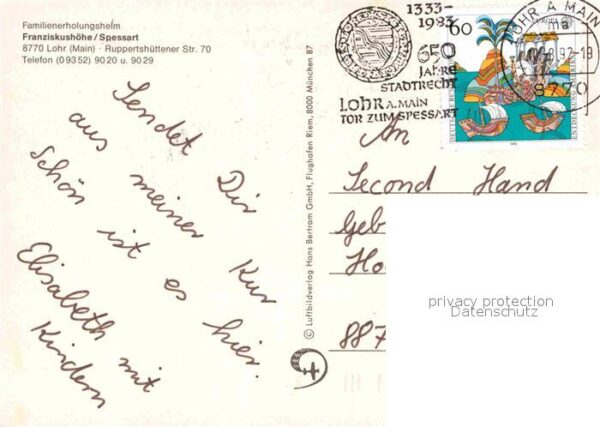 Familienerholungsheim
Franziskushöhe / Spessart
8770 Lohr (Main) · Ruppertshüttener Str. 70
Telefon (0 93 52) 90 20 u. 90 29
Sendet Dir
aus meiner Kur
Schön ist es hier.
Elisabeth mit
Kindern
© Luftbildverlag Hans Bertram GmbH, Flughafen Riem, 8000 München 87
1333-
1983
650
JAHRE
STADTRECHT
LOHR A. MAIN
TOR ZUM SPESSART
LOHR A MAIN
8770
60
EUROPA
DEUTSCHE BUNDESPOST
An
Second Hand
Geb
Ho
887
privacy protection
Datenschutz